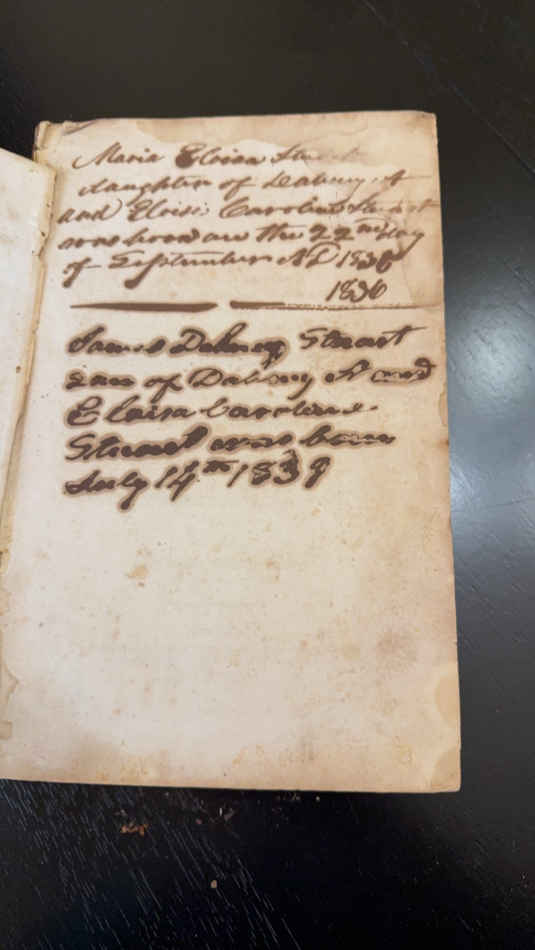 Maria Eloisa Stuart
daughter of Dabney A
and Eloisa Caroline Stuart
was born on the 22nd day
of September AD 1836
1836
James Dabney Stuart
son of Dabney A and
Eloisa Caroline
Stuart was born
July 14th 1838